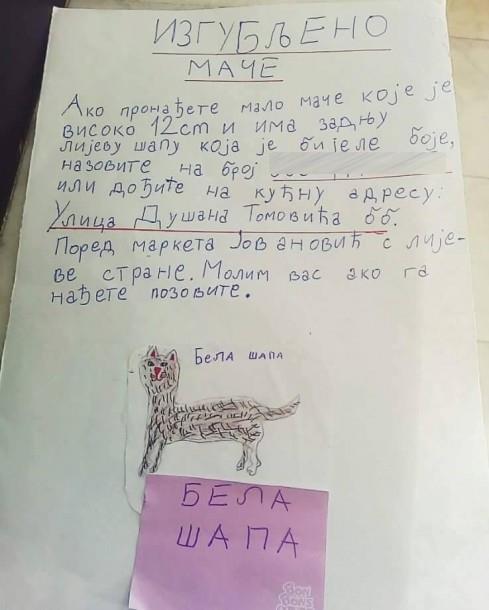 ИЗГУБЉЕНО
МАЧЕ
Ако пронађете мало маче које је
високо 12cm и има задњу
лијеву шапу која је бијеле боје,
назовите на број
или дођите на кућну адресу:
Улица Душана Томовића бб.
Поред маркета Јовановић с лије-
ве стране. Молим вас ако га
нађете позовите.
Бела шапа
БЕЛА
ШАПА
BON
BONS